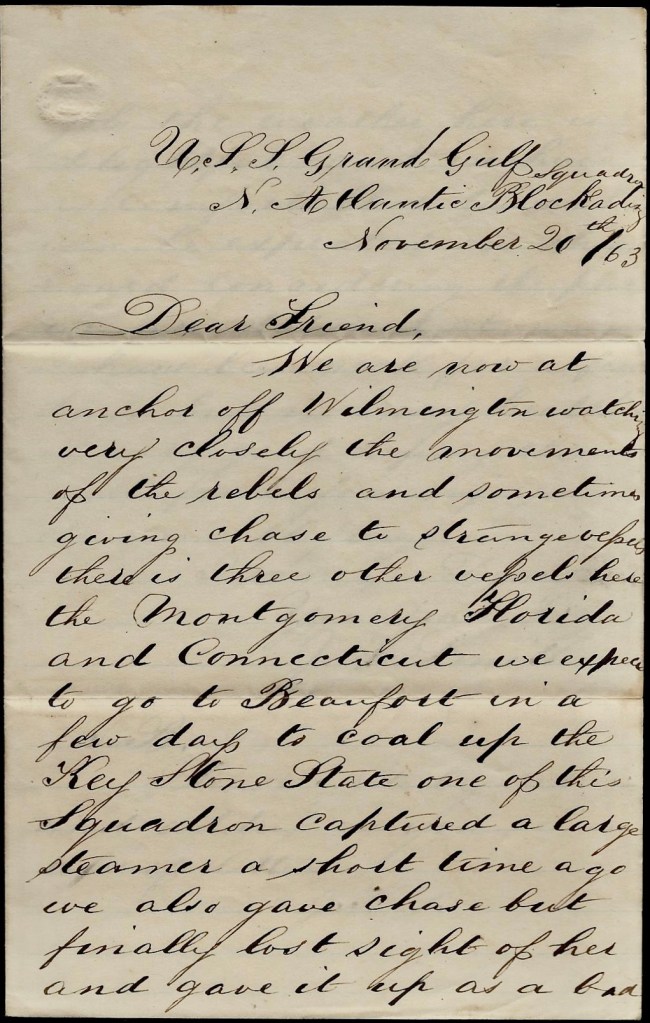 U.S.S. Grand Gulf
N. Atlantic Blockading Squadron
November 20th /63
Dear Friend,
We are now at
anchor off Wilmington watching
very closely the movements
of the rebels and sometimes
giving chase to strange vessels
there is three other vessels here
the Montgomery Florida
and Connecticut we expect
to go to Beaufort in a
few days to coal up the
Key Stone State one of this
Squadron captured a large
steamer a short time ago
we also gave chase but
finally lost sight of her
and gave it up as a bad